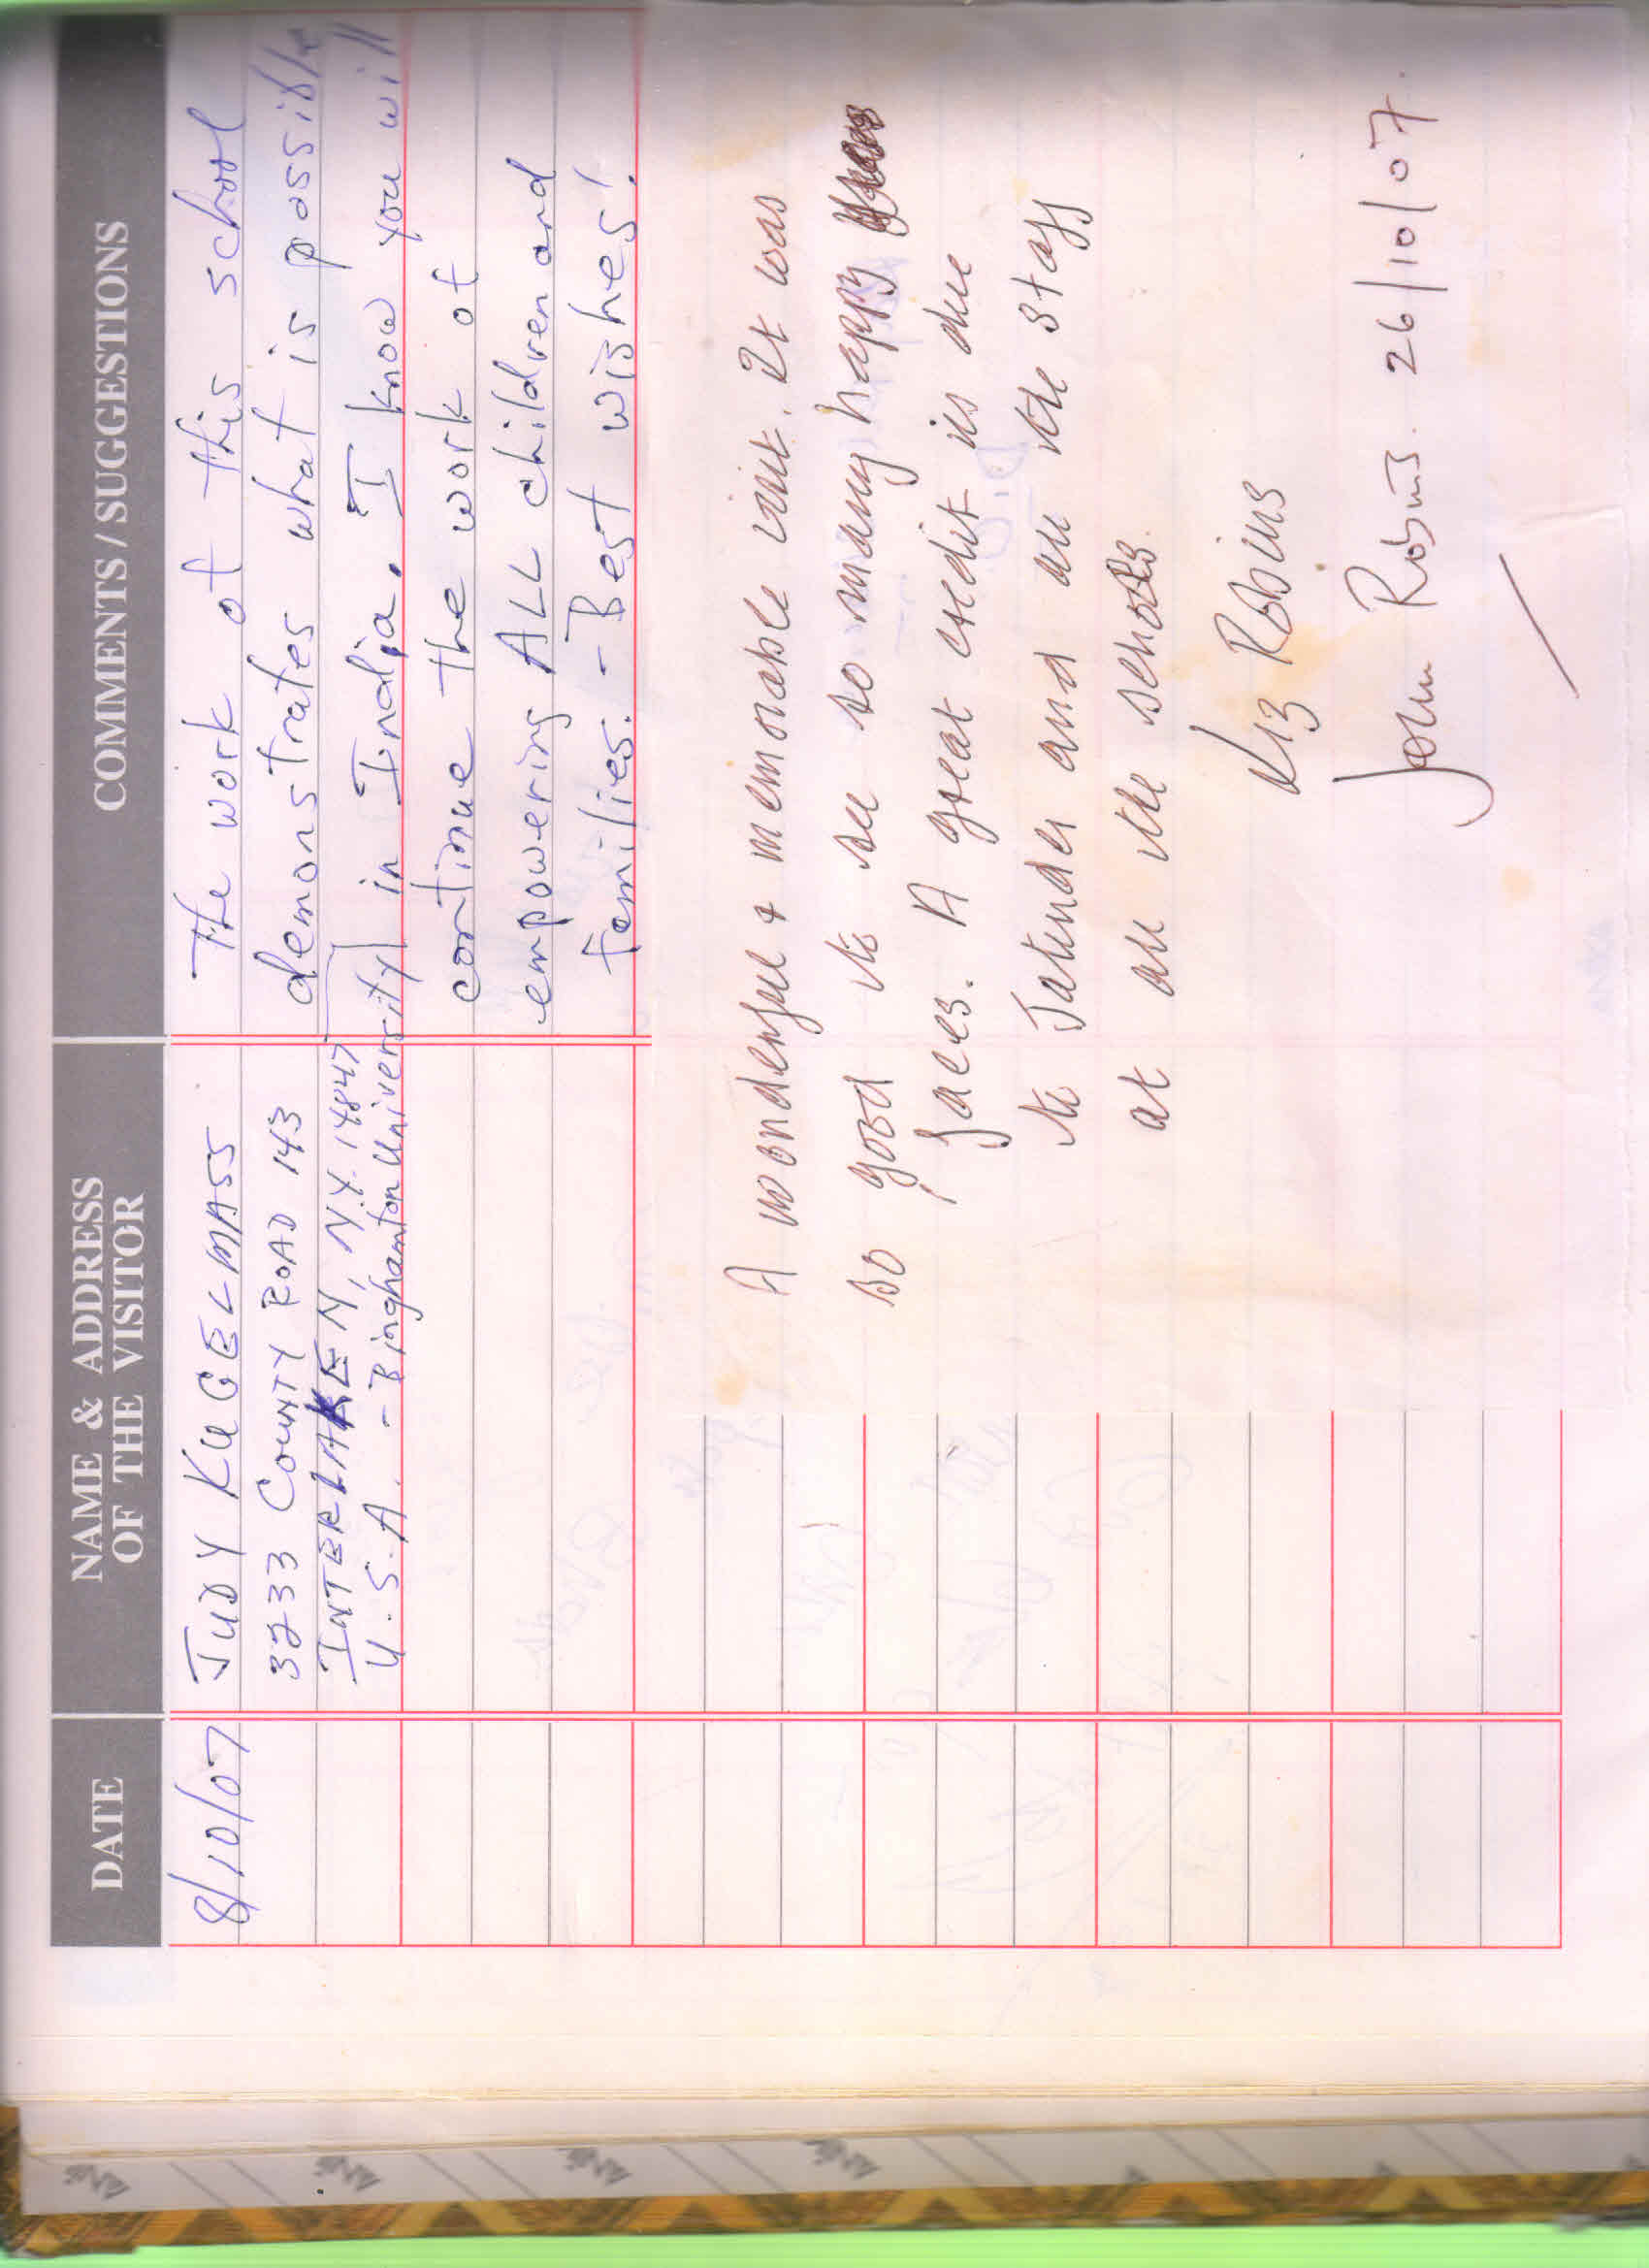 DATE
NAME & ADDRESS
OF THE VISITOR
COMMENTS / SUGGESTIONS
8/10/07
JUDY KUGELMASS
3233 COUNTY ROAD 143
INTERLAKEN, N.Y. 14847
U.S.A. - Binghamton University
The work of this school
demonstrates what is possible
in India. I know you will
continue the work of
empowering ALL children and
families. - Best wishes!
A wonderful & memorable visit. It was
so good to see so many happy
faces. A great credit is due
to Jatinder and all the staff
at all the schools.
Robins
John Robins. 26/10/07